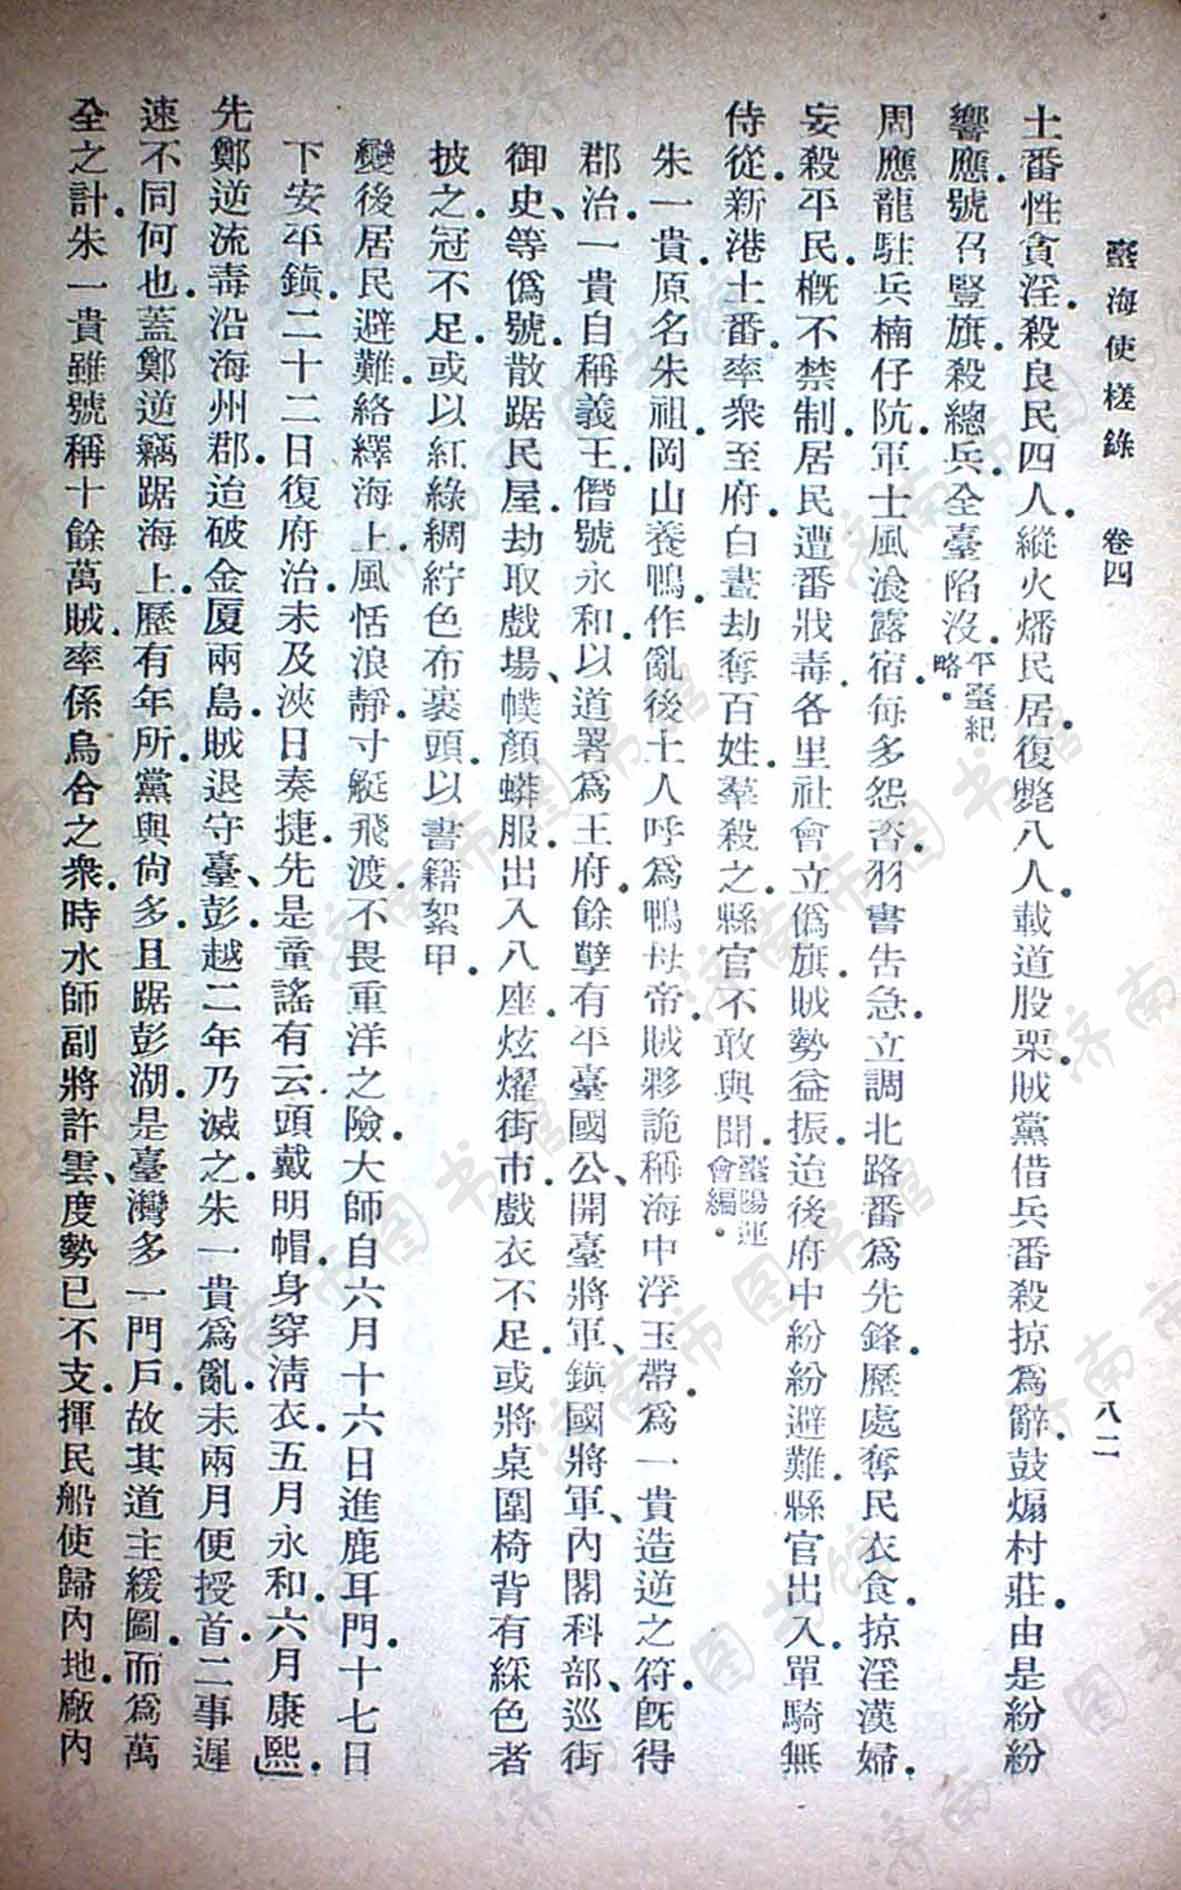 臺海使槎錄　卷四　八二
土番性貪淫．殺良民四人．縱火燔民居．復斃八人．載道股栗．賊黨借兵番殺掠爲辭．鼓煽村莊．由是紛紛
響應．號召豎旗．殺總兵．全臺陷沒．平臺紀略．
周應龍駐兵楠仔阬．軍士風飡露宿．每多怨咨．羽書告急．立調北路番爲先鋒．歷處奪民衣食．掠淫漢婦．
妄殺平民．槪不禁制．居民遭番戕毒．各里社會立僞旗．賊勢益振．迨後府中紛紛避難．縣官出入．單騎無
侍從．新港土番．率衆至府．白晝劫奪百姓．羣殺之．縣官不敢與聞．臺陽運會編．
朱一貴．原名朱祖．岡山養鴨．作亂後土人呼爲鴨母帝．賊夥詭稱海中浮玉帶．爲一貴造逆之符．旣得
郡治．一貴自稱義王．僭號永和．以道署爲王府．餘孽有平臺國公、開臺將軍、鎭國將軍、內閣科部、巡街
御史、等僞號．散踞民屋．劫取戲場、幞顏蟒服．出入八座．炫燿街市．戲衣不足．或將桌圍椅背有綵色者
披之．冠不足．或以紅綠綢紵色布裹頭．以書籍絮甲．
變後居民避難．絡繹海上．風恬浪靜．寸艇飛渡．不畏重洋之險．大師自六月十六日進鹿耳門．十七日
下安平鎭．二十二日復府治．未及浹日奏捷．先是童謠有云．頭戴明帽．身穿淸衣．五月永和．六月康熙．
先鄭逆流毒沿海州郡．迨破金厦兩島．賊退守臺、彭．越二年乃滅之．朱一貴爲亂．未兩月便授首．二事遲
速不同何也．蓋鄭逆竊踞海上．歷有年所．黨與尙多．且踞彭湖．是臺灣多一門戶．故其道主緩圖．而爲萬
全之計．朱一貴雖號稱十餘萬賊．率係烏合之衆．時水師副將許雲、度勢已不支．揮民船使歸內地．廠內